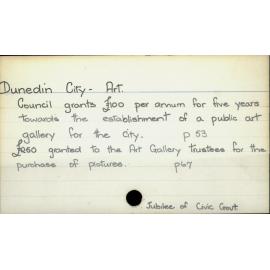 Dunedin City - Art.
Council grants £100 per annum for five years
towards the establishment of a public art
gallery for the city. p 53
£250 granted to the Art Gallery trustees for the
purchase of pictures. p67
Jubilee of Civic Govt